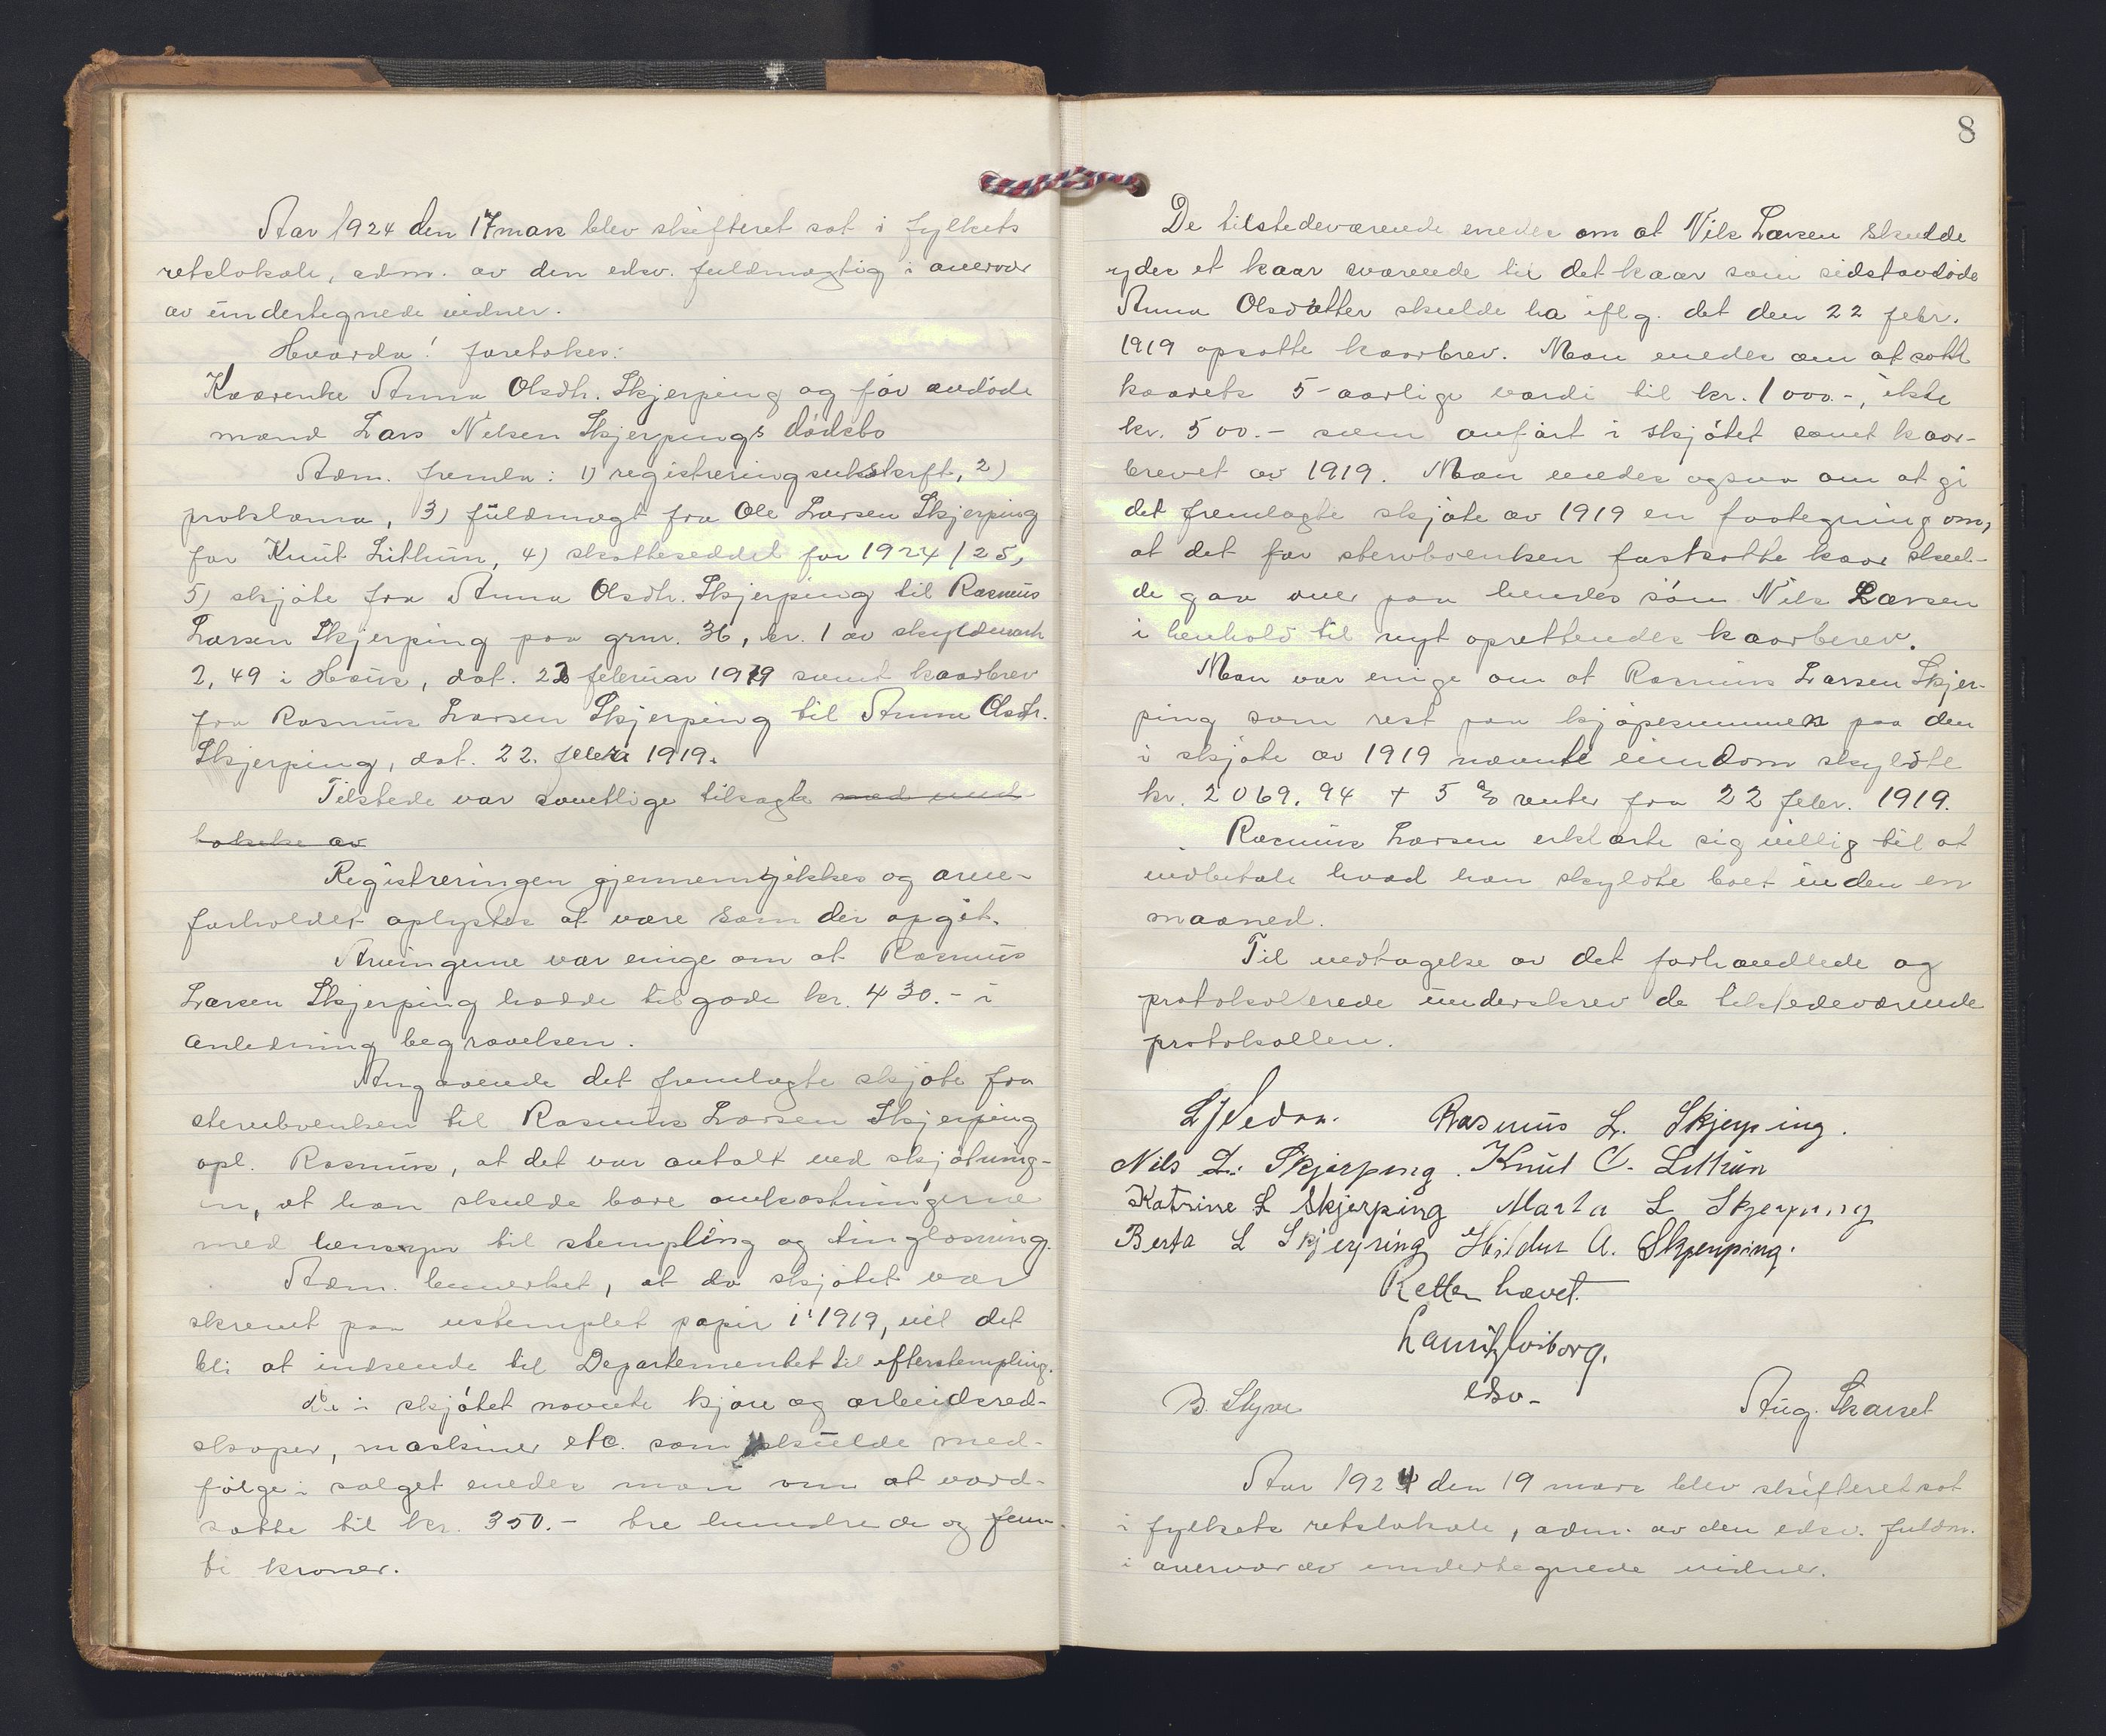 Aar 1924 den 17 mars blev skifteret sat i fylkets
retslokale, adm. av den edsv. fuldmægtig i overvær
av undertegnede vidner.
Hvorda! foretokes:
Kaarenke Anna Olsdtr. Skjerping og før avdøde
mand Lars Nilsen Skjerpings dødsbo
Adm. fremla: 1) registreringsutskrift, 2)
proklama, 3) fuldmagt fra Ole Larsen Skjerping
for Knut Lithun, 4) skatteseddel for 1924/25,
5) skjøte fra Anna Olsdtr. Skjerping til Rasmus
Larsen Skjerping paa grnr. 36, br. 1 av skyldmark
2,49 i Haus, dat. 22 februar 1919 samt kaarbrev
fra Rasmus Larsen Skjerping til Anna Olsdtr.
Skjerping, dat. 22. febr 1919.
Tilstede var samtlige tilsagte med und-
tagelse av
Registreringen gjennemgikkes og arve-
forholdet oplystes at være som der opgit.
Arvingerne var enige om at Rasmus
Larsen Skjerping hadde tilgode kr. 430.- i
anledning begravelsen.
Angaaende det fremlagte skjøte fra
stervboenken til Rasmus Larsen Skjerping
opl. Rasmus, at det var avtalt ved skjøtning-
en, at han skulde bære omkostningerne
med hensyn til stempling og tinglæsning.
Adm. bemerket, at da skjøtet var
skrevet paa ustemplet papir i 1919, vil det
bli at indsende til Departementet til efterstempling.
De i skjøtet nævnte kjøre og arbeidsred-
skaper, maskiner etc. som skulde med-
følge i salget enedes man om at værd-
sætte til kr. 350.- tre hundrede og fem-
ti kroner.
8
De tilstedeværende enedes om at Nils Larsen skulde
yde et kaar svarende til det kaar som sidstavdøde
Anna Olsdatter skulde ha iflg. det den 22 febr.
1919 opsatte kaarbrev. Man enedes om at sætte
kaarets 5-aarlige værdi til kr. 1000.-, ikke
kr. 500.- som anført i skjøtet samt kaar-
brevet av 1919. Man enedes ogsaa om at gi
det fremlagte skjøte av 1919 en paategning om,
at det for stervboenken fastsatte kaar skul-
de gaa over paa hendes søn Nils Larsen
i henhold til nyt oprettendes kaarbrev.
Man var enige om at Rasmus Larsen Skjer-
ping som rest paa kjøpesummen paa den
i skjøte av 1919 nævnte eiendom skyldte
kr. 2069.94 + 5 % renter fra 22 febr. 1919.
Rasmus Larsen erklærte sig villig til at
indbetale hvad han skyldte boet inden en
maaned.
Til vedtagelse av det forhandlede og
protokollerede underskrev de tilstedeværende
protokollen.
Rasmus L. Skjerping.
Nils L. Skjerping. Knut O. Lithun
Katrine L Skjerping Marta L Skjerping
Berta L Skjerping Hildur A. Skjerping.
Retten hævet.
Lauritz Woiborg.
edsv-
B. Styve Aug. Skarset
Aar 1924 den 19 mars blev skifteret sat
i fylkets retslokale, adm. av den edsv. fuldm.
i overvær av undertegnede vidner.